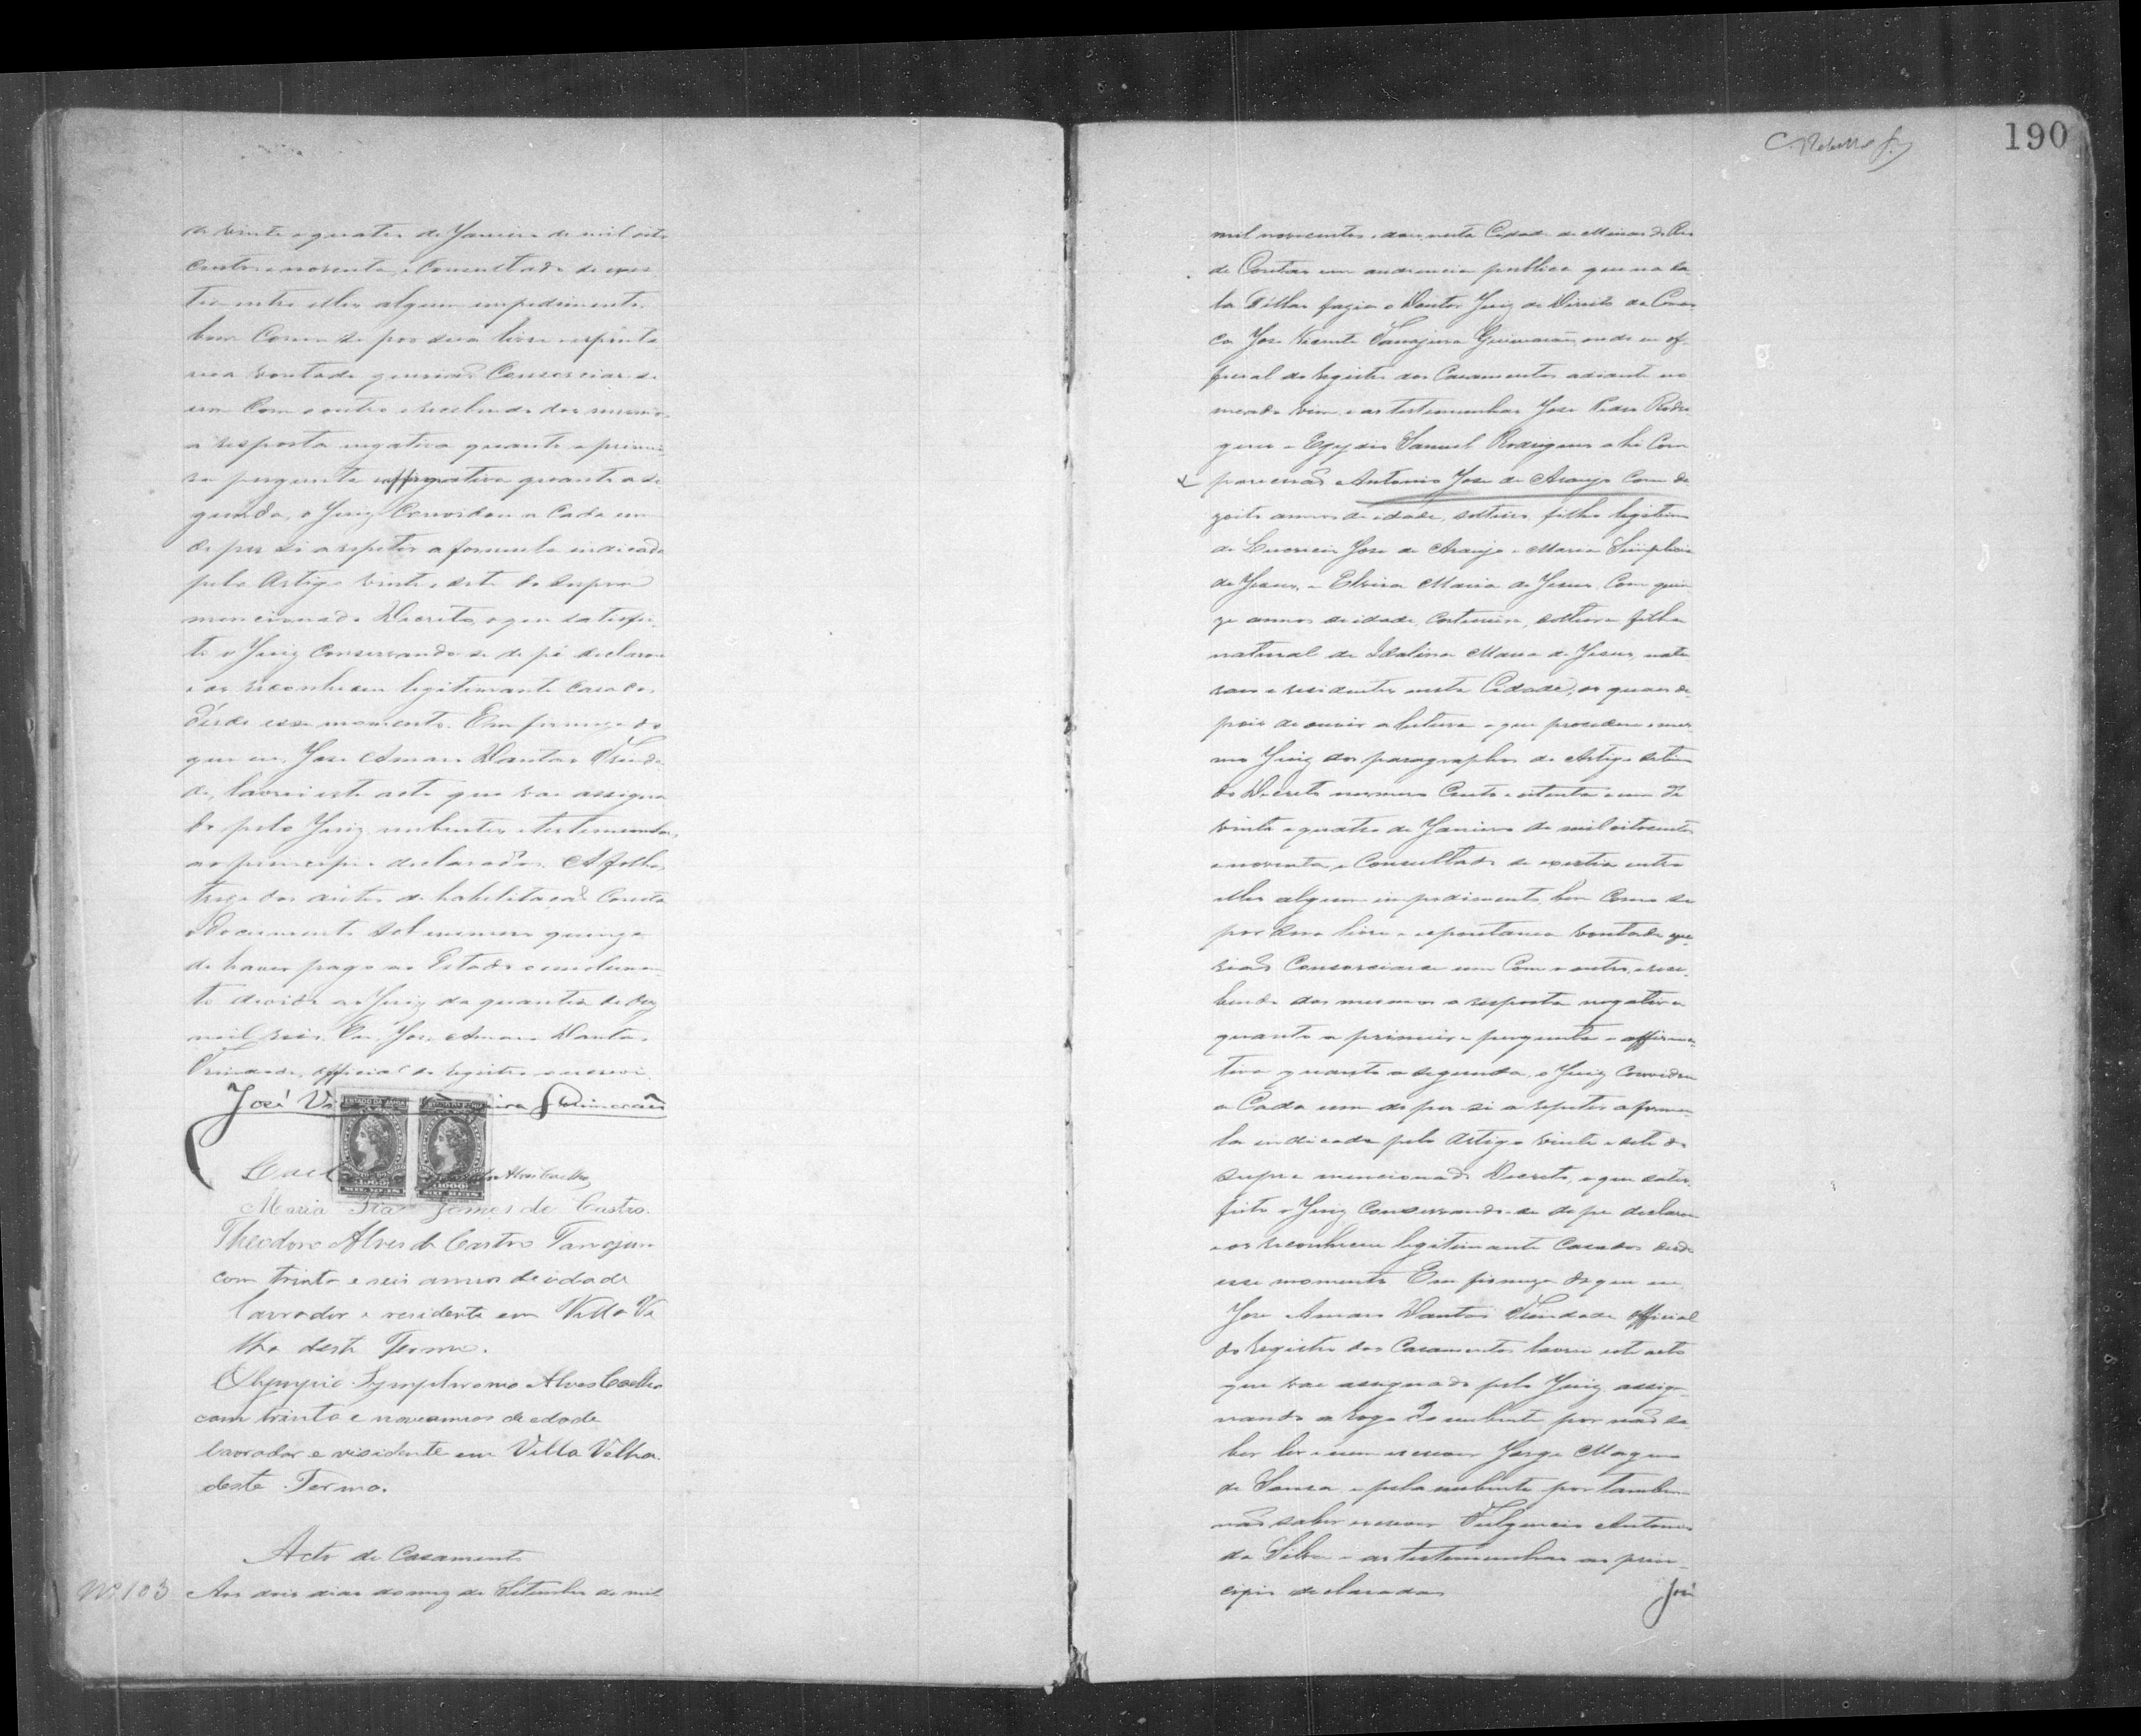 de vinte e quatro de Janeiro de mil oito
centos e noventa, e consultado se exis
tia entre elles algum impedimento
bem como se por sua livre e esponta
nea vontade queriaõ consorciar-se
um com o outro e recebendo dos mesmos
a resposta negativa quanto a primei
ra pergunta e affirmativa quanto a se
gunda, o Juiz convidou a cada um
de per si a repetir a formula indicada
pelo Artigo vinte e sete do supra
mencionado Decreto, o que satisfei
to o Juiz conservando-se de pé declarou
e os reconheceu legitimante casados
desde esse momento. Em firmeza do
que eu, Jose Amaro Dantas Trinda
de, lavrei este acto que vae assigna
do pelo Juiz, nubentes e testemunhas
ao principio declarados. A folhas
treze dos autos de habilitaçaõ consta
o documento sob numero quinze
de haver pago ao Estado o emolumen
to devido ao Juiz da quantia de dez
mil reis. Eu, Jose Amaro Dantas
Trindade, official do registro o escrevi.
José Vi Guimarães
Alves Coelho
Maria Gomes de Castro.
Theodoro Alves de Castro Tanajura
com trinta e seis annos de idade
lavrador e residente em Villa Ve
lha deste Termo.
Olympio Symphronio Alves Coelho
com trinta e nove annos de edade
lavrador e residente em Villa Velha
deste Termo.
Acto de Casamento
Nº 103 Aos dois dias do mez de Setembro de mil
190
mil novecentos e dous, nesta Cidade de Minas do Rio
de Contas em audiencia publica que na sa
la d'ellas fazia o Doutor Juiz de Direito da Comar
ca Jose Vicente Tanajura Guimarães, onde eu of
ficial do registro dos Casamentos adiante no
meado vim, e as testemunhas Jose Pedro Rodri
gues e Egydio Samuel Rodrigues ahi com
pareceraõ Antonio Jose de Araujo com de
zoito annos de idade, solteiro, filho legitimo
de Jose de Araujo e Maria Simplicia
de Jesus, e Elvira Maria de Jesus, com quin
ze annos de idade, costureira, solteira filha
natural de Idalina Maria de Jesus, natu
raes e residentes nesta Cidade, os quaes de
pois de ouvir a leitura a que procedeu o mes
mo Juiz dos paragraphos do Artigo setimo
do Decreto numero cento e oitenta e um de
vinte e quatro de Janeiro de mil oitocentos
e noventa, e consultado se existia entre
elles algum impedimento, bem como se
por sua livre e espontanea vontade que
riaõ consorciar-se um com o outro, e rece
bendo dos mesmos a resposta negativa
quanto a primeira pergunta e affirma
tiva quanto a segunda, o Juiz convidou
a cada um de per si a repetir a formu
la indicada pelo Artigo vinte e sete do
supra mencionado Decreto, o que satis
feito o Juiz conservando-se de pé declarou
e os reconheceu legitimante casados desde
esse momento. Em firmeza do que eu
Jose Amaro Dantas Trindade official
do registro dos Casamentos lavrei este acto
que vae assignado pelo Juiz, assig
nando a rogo do nubente por naõ sa
ber ler e nem escrever Jorge
de Souza, e pela nubente por tambem
naõ saber escrever Fulgencio Antonio
da Silva e as testemunhas ao prin
cipio declaradas
José